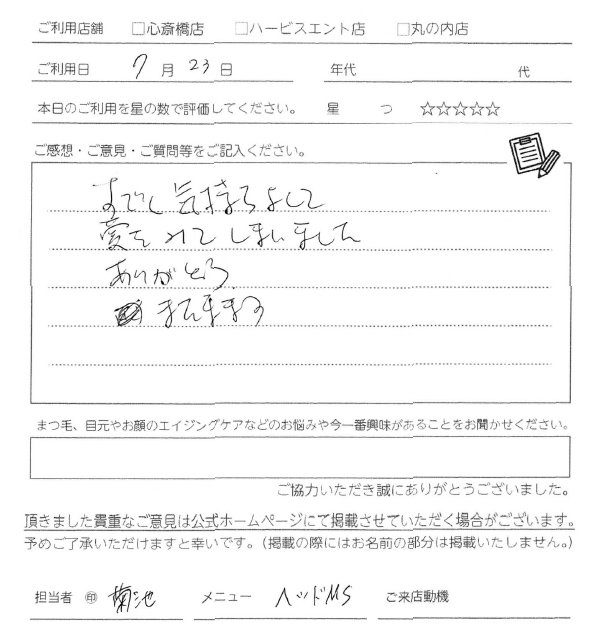 ご利用店舗 □心斎橋店 □ハービスエント店 □丸の内店
ご利用日 7月23日 年代 代
本日のご利用を星の数で評価してください。 星 つ ☆☆☆☆☆
ご感想・ご意見・ご質問等をご記入ください。
気持ちよくて
夢を みて しまいました
ありがとう
また来ます
まつ毛、目元やお顔のエイジングケアなどのお悩みや今一番興味があることをお聞かせください。
ご協力いただき誠にありがとうございました。
頂きました貴重なご意見は公式ホームページにて掲載させていただく場合がございます。
予めご了承いただけますと幸いです。(掲載の際にはお名前の部分は掲載いたしません。)
担当者 ㊞ 菊池 メニュー ヘッドMS ご来店動機